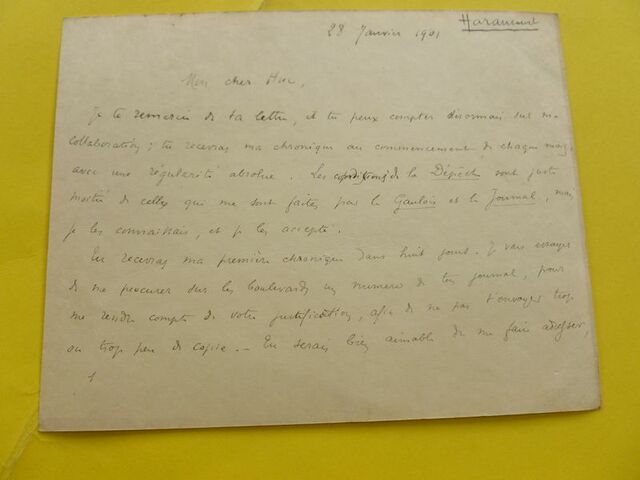 28 Janvier 1901
Haraucourt
Mon cher Huc,
Je te remercie de ta lettre, et tu peux compter désormais sur ma
collaboration ; tu recevras ma chronique au commencement de chaque mois,
avec une régularité absolue. Les conditions de la Dépêche sont juste
moitié de celles qui me sont faites par le Gaulois et le Journal, mais
je les connaissais, et je les accepte.
Tu recevras ma première chronique dans huit jours. Je vais essayer
de me procurer sur les boulevards un numéro de ton journal, pour
me rendre compte de votre justification, afin de ne pas t'envoyer trop
ou trop peu de copie. _ Tu serais bien aimable de me faire adresser,
1